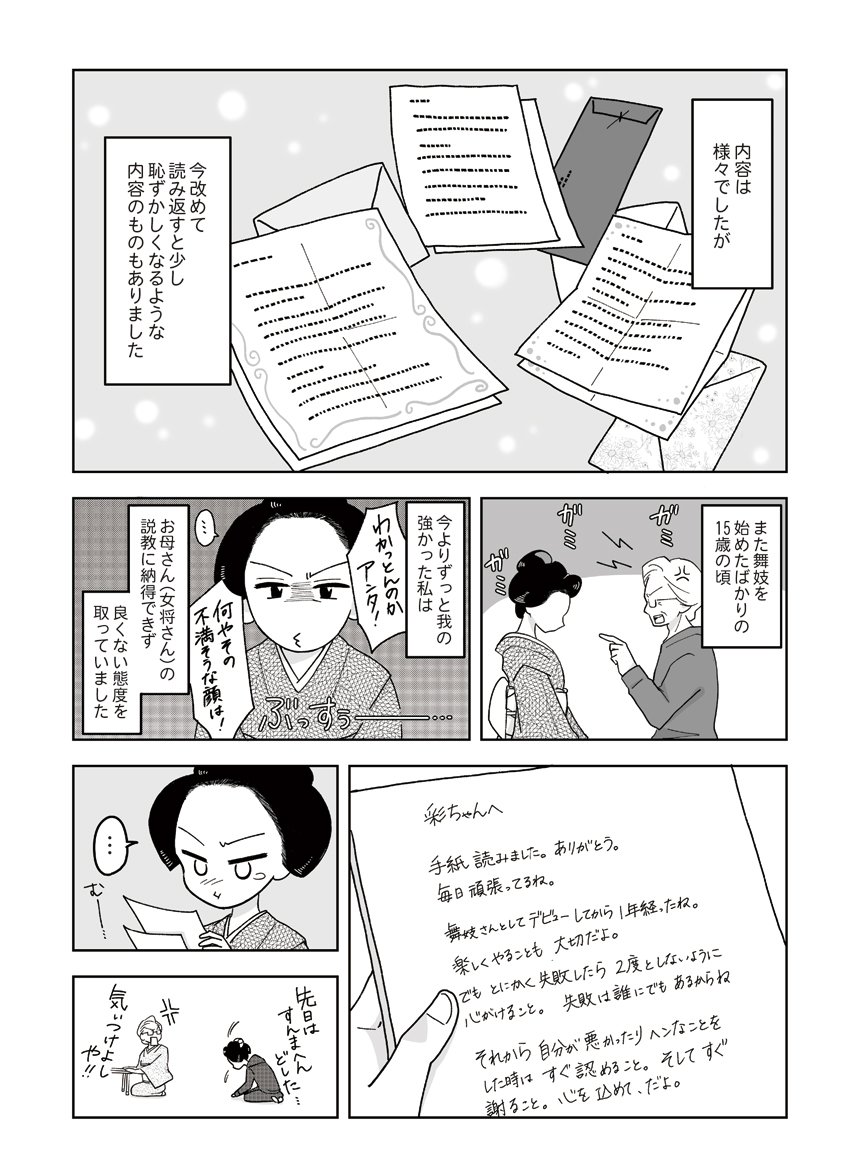 内容は
様々でしたが
今改めて
読み返すと少し
恥ずかしくなるような
内容のものもありました
また舞妓を
始めたばかりの
15歳の頃
ガミ
ガミ
ガミ
今よりずっと我の
強かった私は
わかっとんのか
アンタ!
…
何やその
不満そうな顔は!
ぶっすぅー…
お母さん(女将さん)の
説教に納得できず
良くない態度を
取っていました
彩ちゃんへ
手紙 読みました。ありがとう。
毎日 頑張ってるね。
舞妓さんとしてデビューしてから1年経ったね。
楽しくやることも 大切だよ。
でも とにかく失敗したら 2度としないように
心がけること。 失敗は誰にでもあるからね
それから 自分が悪かったりヘンなことを
した時は すぐ認めること。そして すぐ
謝ること。心を込めて、だよ。
…
むー
先日は
すんまへん
どした…
気ぃつけよし
や!!